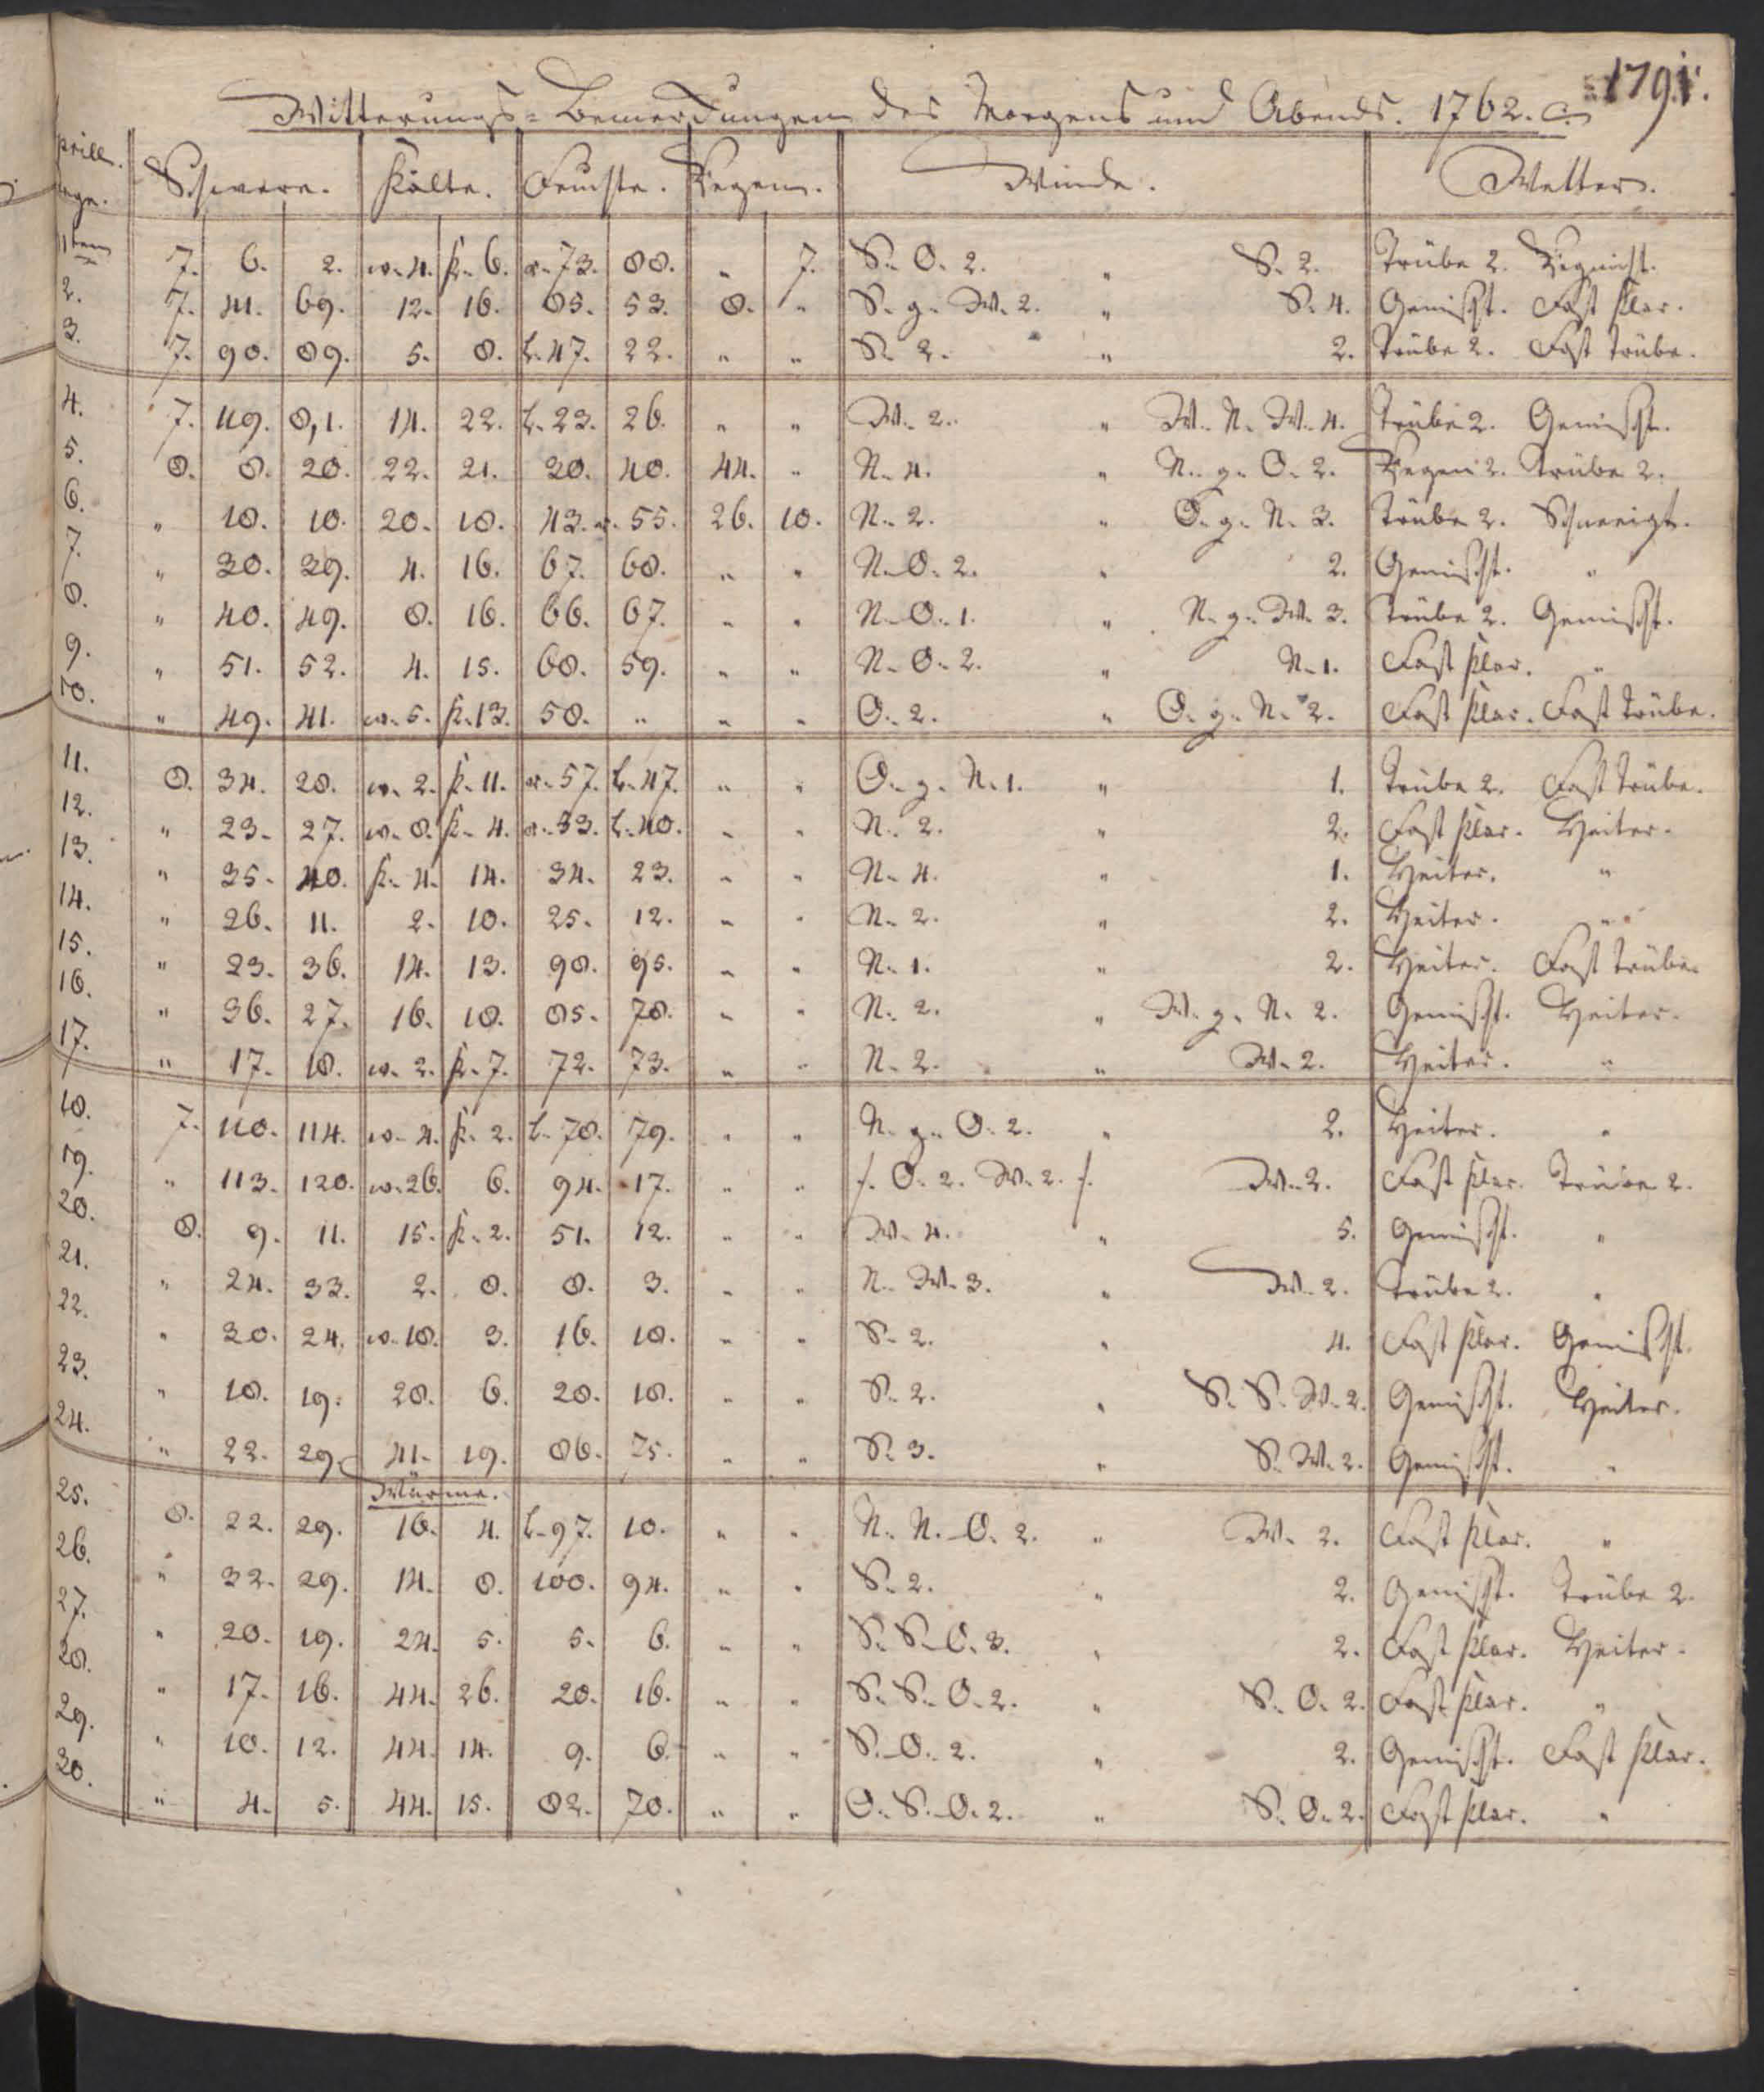 1791.
Witterungs-Bemerkungen des Morgens und Abends. 1762.
prill. Schwere. Kälte. Feuchte. Regen. Winde. Wetter.
age.
1ten 7. 6. 2. w. 4. K. 6. 73. 88. " 7. S. O. 2. " S. 2. Trübe 2. Regnicht.
2. 7. 41. 69. 12. 16. 85. 53. 8. " S. g. W. 2. " S. 4. Gemischt. Fast klar.
3. 7. 90. 89. 5. 8. L. 47. 22. " " S. 2. " 2. Trübe 2. Fast trübe.
4. 7. 119. 8,1. 14. 22. L. 23. 26. " " W. 2. " W. N. W. 4. Trübe 2. Gemischt.
5. 8. 8. 20. 22. 21. 30. 40. 44. " N. 4. " N. g. O. 2. Regen 2. Trübe 2.
6. " 18. 10. 20. 18. 43. 55. 26. 10. N. 2. " O. g. N. 3. Trübe 2. Schneeigt.
7. " 30. 39. 4. 16. 67. 68. " " N. O. 2. " 2. Gemischt. "
8. " 40. 49. 8. 16. 66. 67. " " N. O. 1. " N. g. W. 3. Trübe 2. Gemischt.
9. " 51. 52. 4. 15. 60. 59. " " N. O. 2. " N. 1. Fast klar. "
10. " 49. 41. w. 5. K. 13. 58. " " " O. 2. " O. g. N. 2. Fast klar. Fast trübe.
11. 8. 34. 28. w. 2. K. 11. 57. L. 47. " " O. g. N. 1. " 1. Trübe 2. Fast trübe.
12. " 23. 27. w. 8. K. 4. 33. L. 40. " " N. 2. " 2. Fast klar. Heiter.
13. " 35. 40. K. 4. 14. 34. 23. " " N. 4. " 1. Heiter. "
14. " 26. 11. 2. 10. 25. 12. " " N. 2. " 2. Heiter. "
15. " 23. 36. 14. 13. 98. 95. " " N. 1. " 2. Heiter. Fast trübe.
16. " 36. 27. 16. 18. 85. 78. " " N. 2. " W. g. N. 2. Gemischt. Heiter.
17. " 17. 18. w. 2. K. 7. 72. 73. " " N. 2. " W. 2. Heiter. "
18. 7. 110. 114. w. 4. K. 2. L. 78. 79. " " N. g. O. 2. " 2. Heiter. "
19. " 113. 120. w. 26. 6. 94. 17. " " f. O. 2. W. 2. f. W. 2. Fast klar. Trübe 2.
20. 8. 9. 11. 15. K. 2. 51. 12. " " W. 4. " 5. Gemischt. "
21. " 24. 33. 2. 8. 8. 3. " " N. W. 3. " W. 2. Trübe 2. "
22. " 30. 24. w. 18. 3. 16. 18. " " S. 2. " 4. Fast klar. Gemischt.
23. " 18. 19. 28. 6. 20. 18. " " S. 2. " S. S. W. 2. Gemischt. Heiter.
24. " 22. 29. 41. 19. 86. 75. " " S. 3. " S. W. 2. Gemischt. "
Wärme.
25. 8. 22. 29. 16. 4. L. 97. 10. " " N. N. O. 2. " W. 2. Fast klar. "
26. " 32. 29. 14. 8. 100. 94. " " S. 2. " 2. Gemischt. Trübe 2.
27. " 20. 19. 24. 5. 5. 6. " " S. S. O. 3. " 2. Fast klar. Heiter.
28. " 17. 16. 44. 26. 20. 16. " " S. S. O. 2. " S. O. 2. Fast klar. "
29. " 10. 12. 44. 14. 9. 6. " " S. O. 2. " 2. Gemischt. Fast klar.
30. " 4. 5. 44. 15. 82. 70. " " O. S. O. 2. " S. O. 2. Fast klar. "